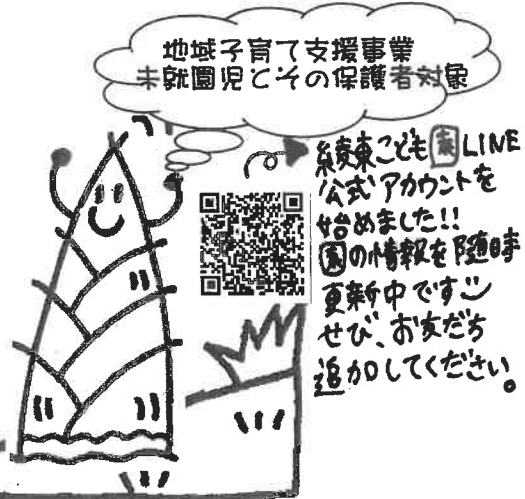 地域子育て支援事業
未就園児とその保護者対象
綾東こども園LINE
公式アカウントを
始めました!!
園の情報を随時
更新中です
ぜひ、お友だち
追加してください。